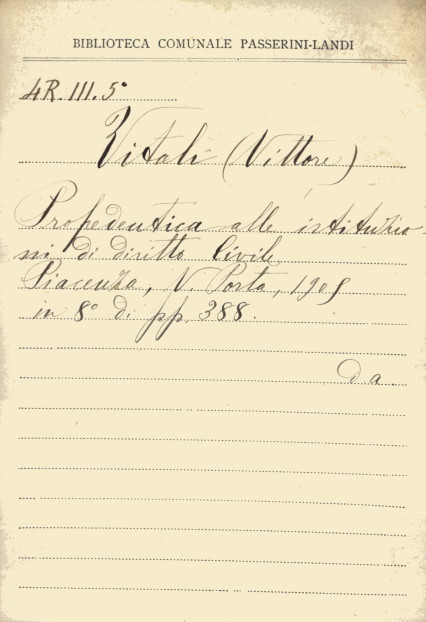 BIBLIOTECA COMUNALE PASSERINI-LANDI
4R.III.5°
Vitali (Vittore)
Propedeutica alle istituzio
ni di diritto Civile
Piacenza, V. Porta, 1905
in 8° di pp. 388.
Da.